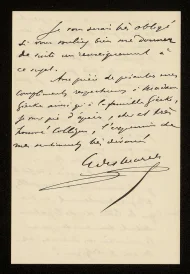 Je vous serais très obligé
si vous vouliez bien me donner
de suite un renseignement à
ce sujet.
Avec prière de présenter mes
compliments respectueux à Madame
ainsi qu'à la famille
je vous prie d'agréer, cher et très
honoré Collègue, l'expression de
mes sentiments très dévoués